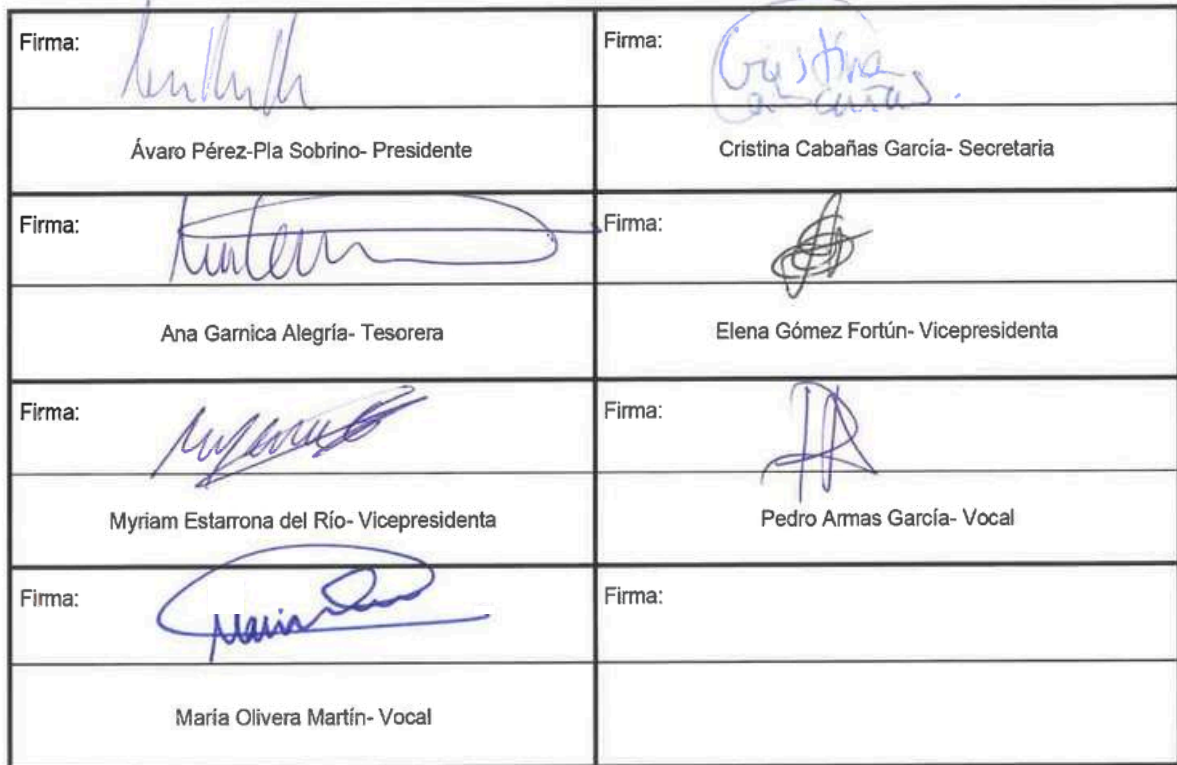 Firma:
Firma:
Cristina
Cabañas.
Ávaro Pérez-Pla Sobrino- Presidente
Cristina Cabañas García- Secretaria
Firma:
Firma:
Ana Garnica Alegría- Tesorera
Elena Gómez Fortún- Vicepresidenta
Firma:
Firma:
Myriam Estarrona del Río- Vicepresidenta
Pedro Armas García- Vocal
Firma:
Firma:
María Olivera Martín- Vocal